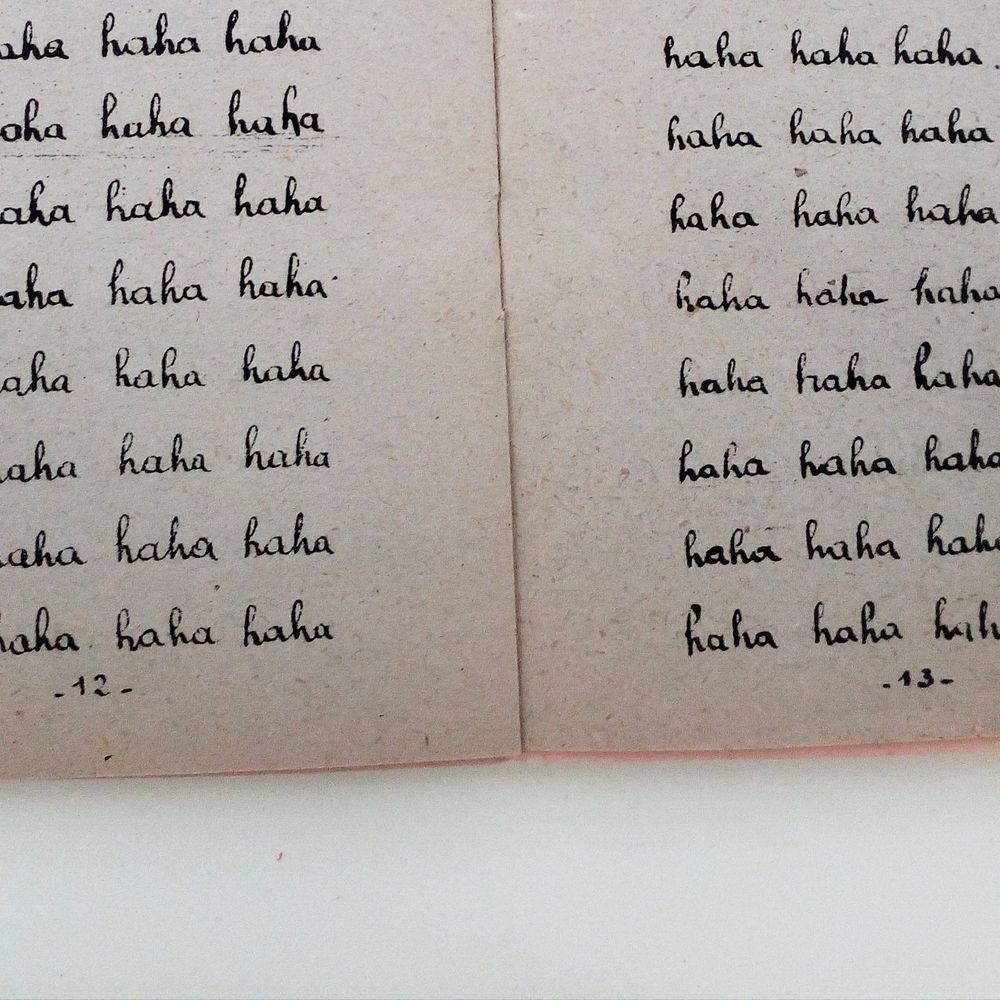 aha haha haha
oha haha haha
aha haha haha
aha haha haha
aha haha haha
haha haha haha
haha haha haha
haha haha haha
-12-
haha haha haha.
haha haha haha
haha haha haha
haha haha haha
haha haha haha
haha haha haha
haha haha hah
haha haha hah
-13-